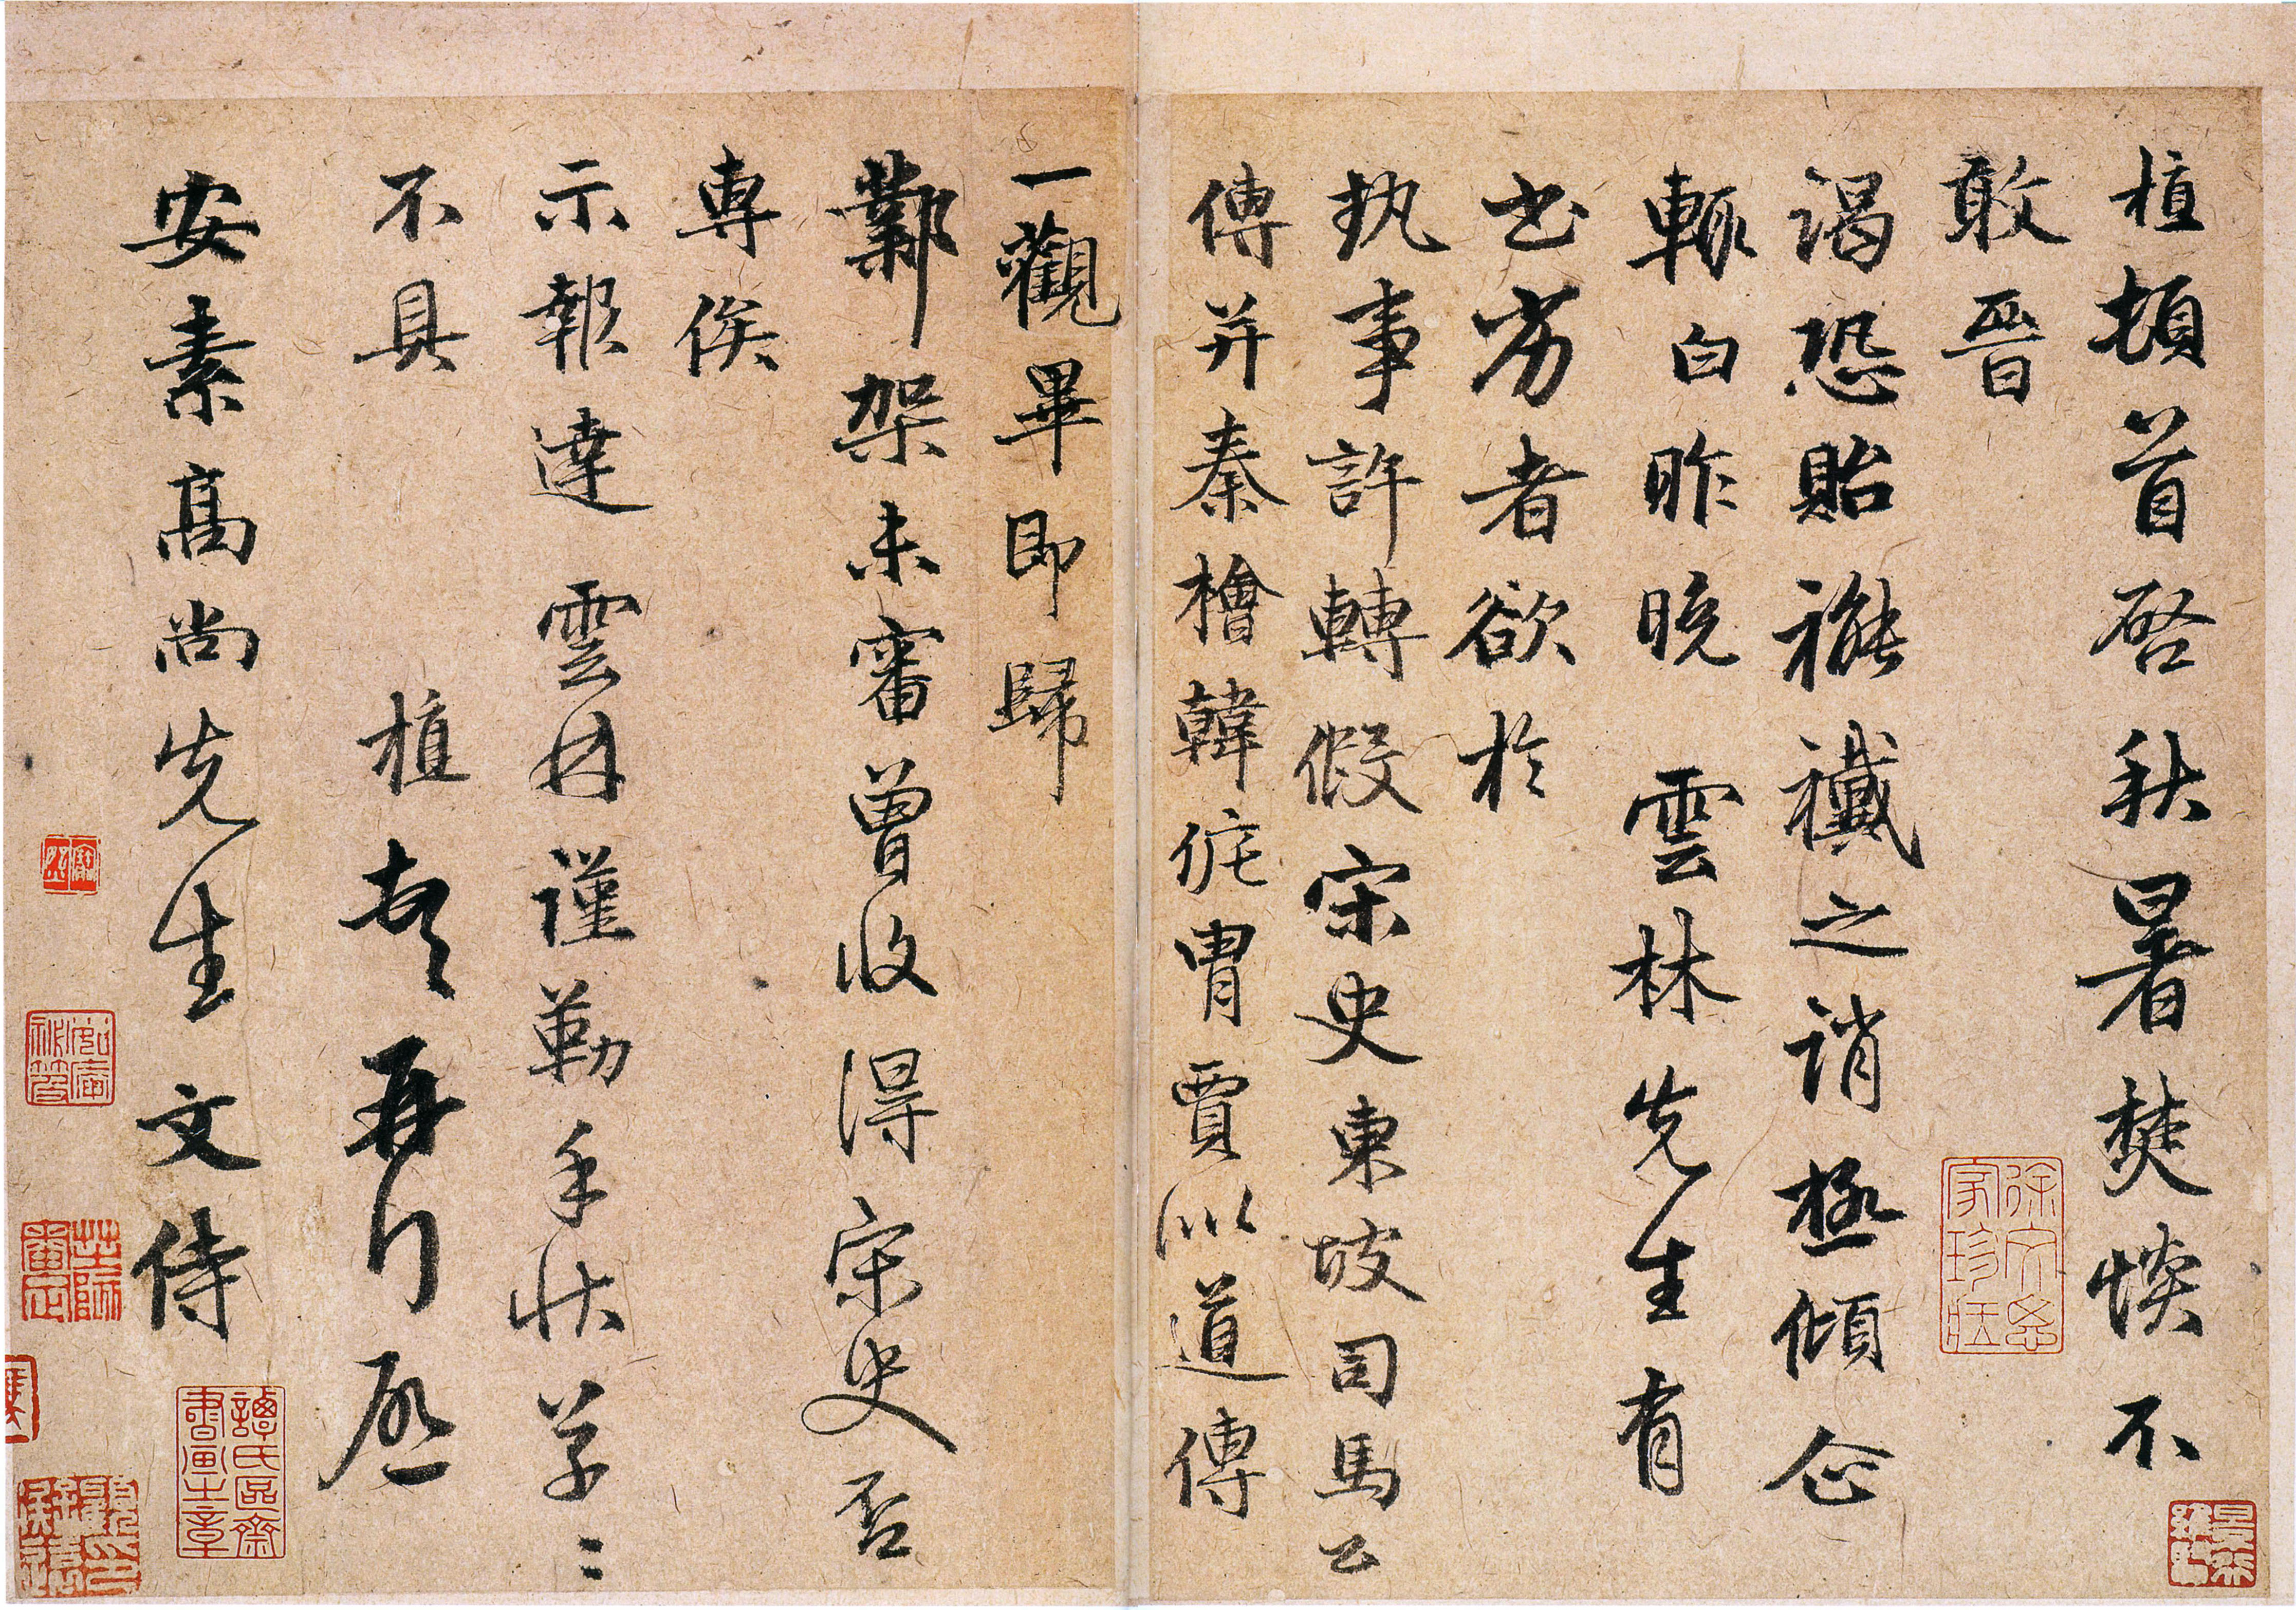 植頓首啓秋暑焚惔不
敢晉
謁恐貽褦襶之誚極傾企
輒白昨晚雲林先生有
書劣者欲於
執事許轉假宋史東坡司馬公
傳并秦檜韓侂冑賈似道傳
一觀畢即歸
鄴架未審曾收得宋史否
專俟
示報達雲林謹勒手狀草〻
不具 植頓再行啓
安素高尚先生文侍
譚氏區齋書畫之章